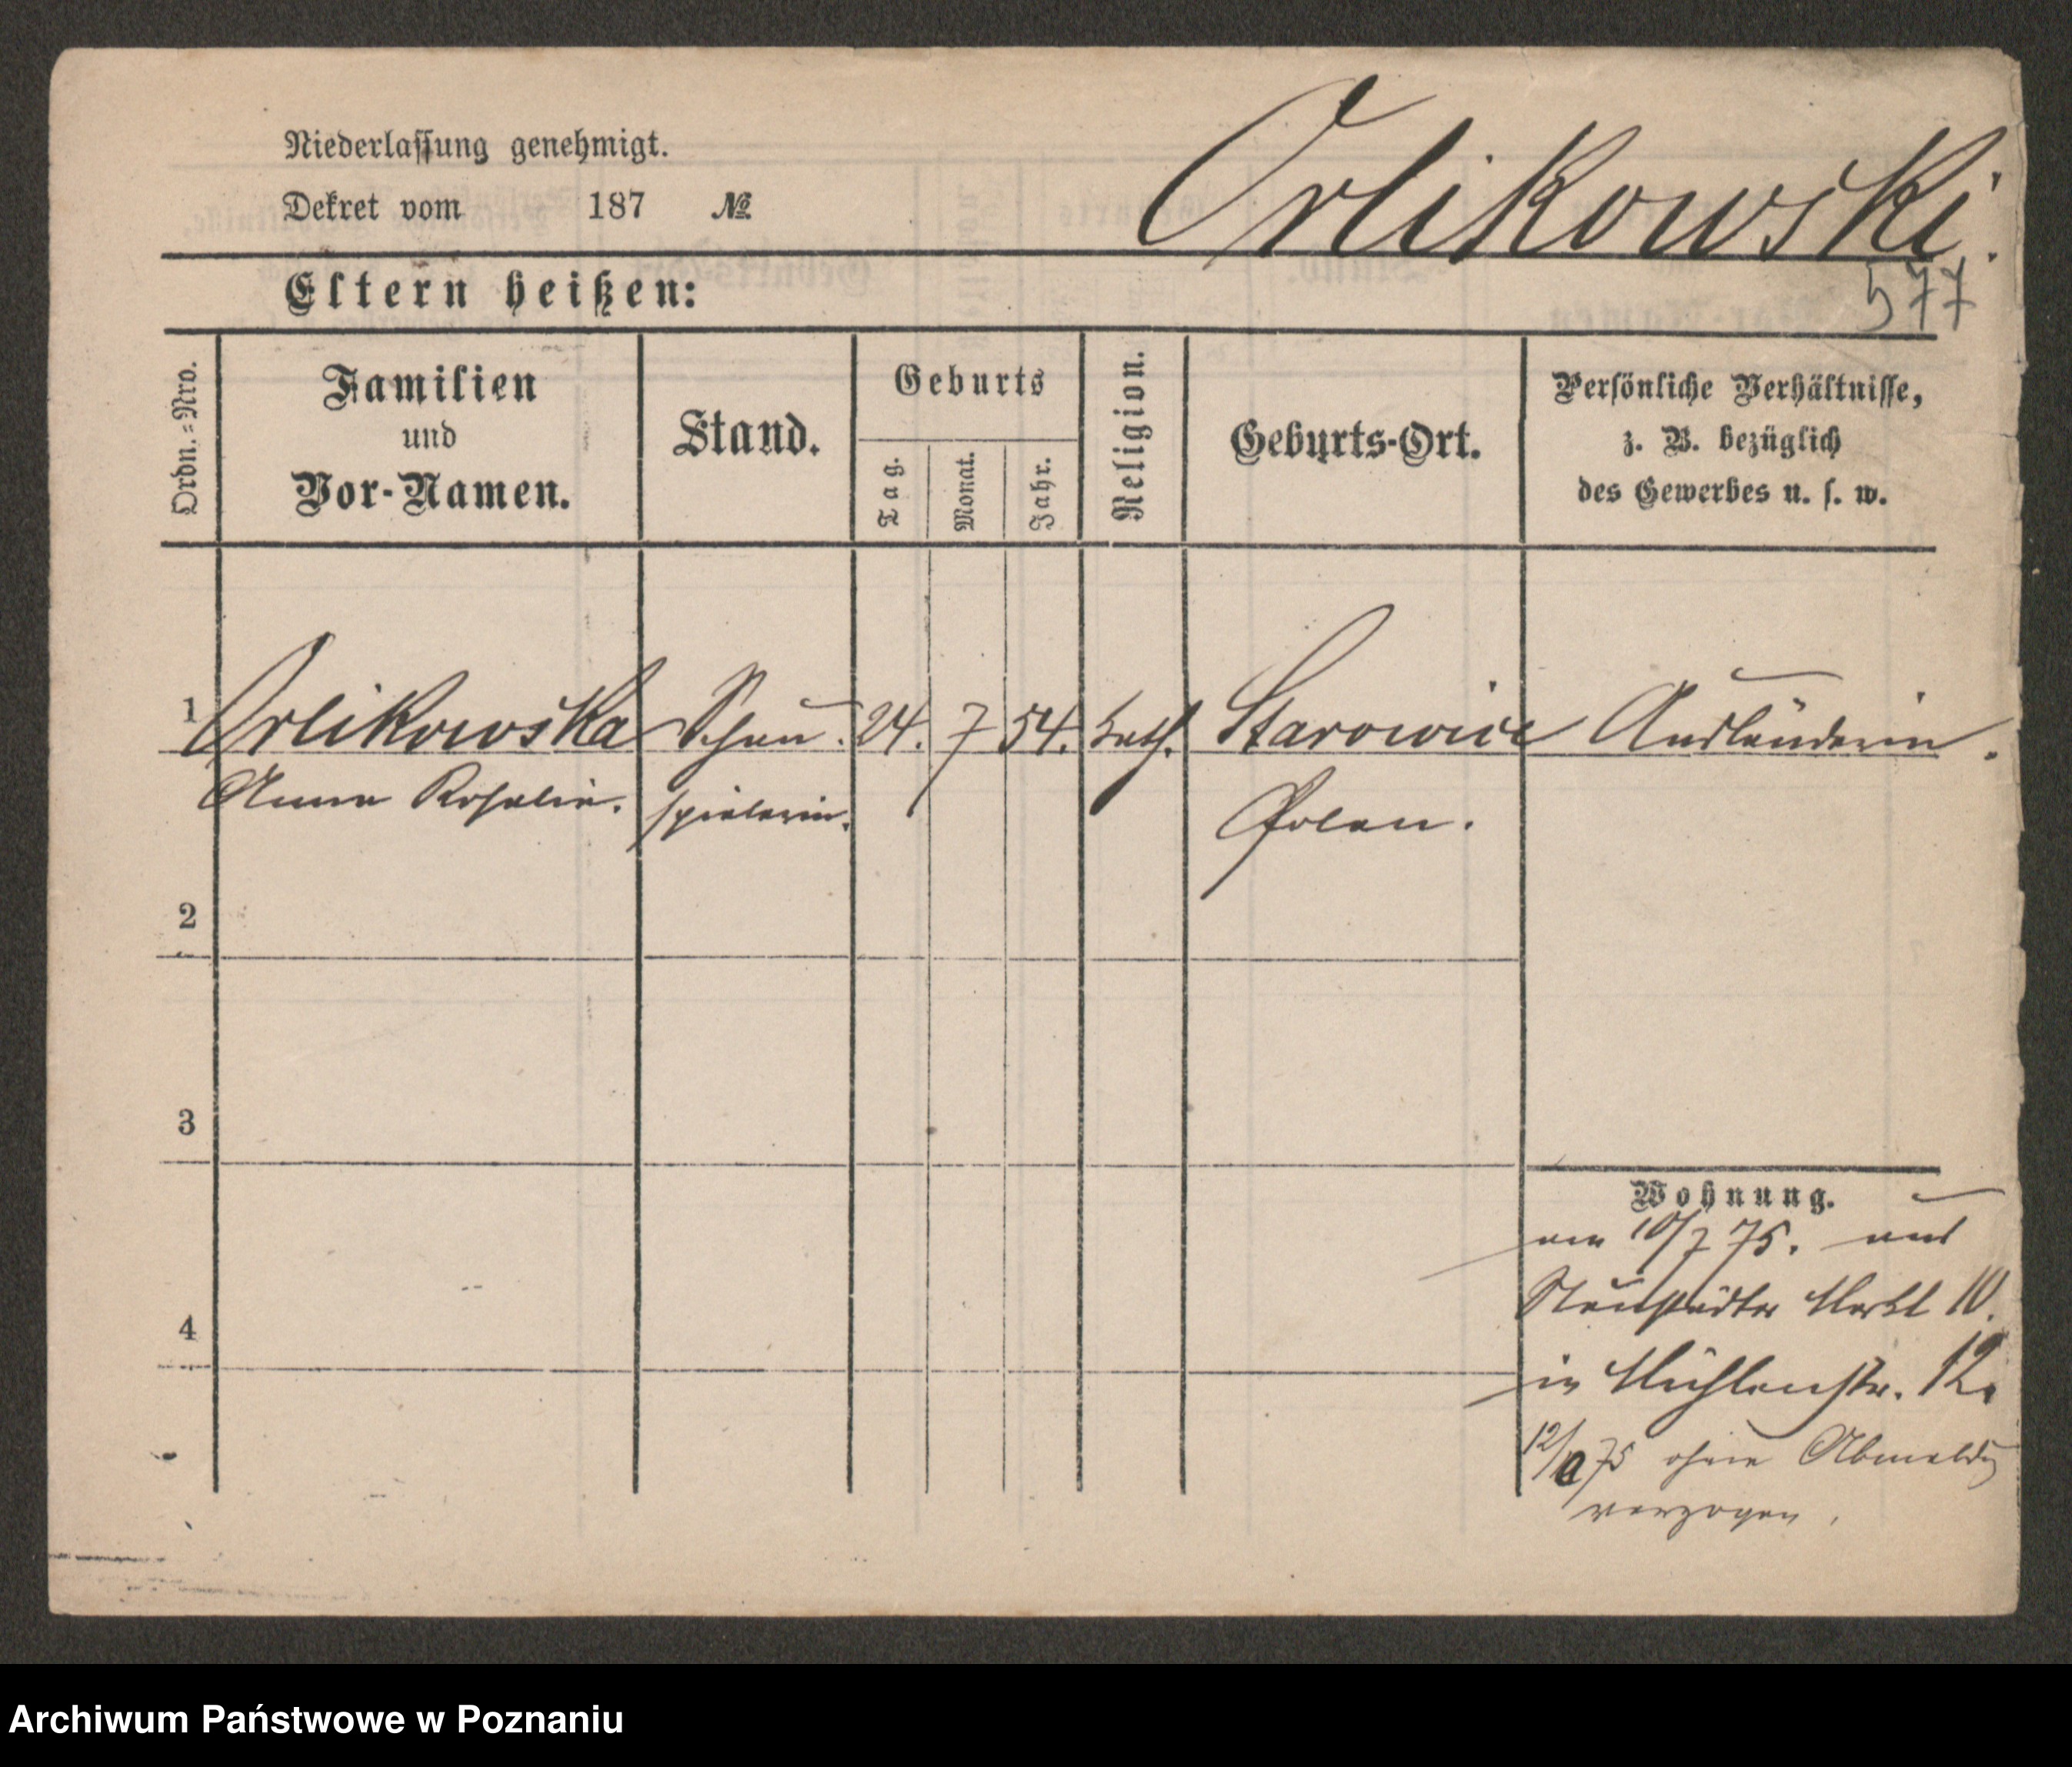 Niederlassung genehmigt.
Dekret vom 187 №
Orlikowski.
577
Eltern heißen:
Ordn.=Nro.
Familien
und
Vor-Namen.
Stand.
Geburts
Tag.
Monat.
Jahr.
Religion.
Geburts-Ort.
Persönliche Verhältnisse,
z. B. bezüglich
des Gewerbes u. s. w.
1 Orlikowska Schau 24. 7 54. kath. Starowice Ausländerin.
Anna Rosalie. spielerin. Polen.
2
3
Wohnung.
am 10/7 75. aus
Neustädter Markt 10.
4
in Mühlenstr. 12.
75 ohne Abmeldg
verzogen.
Archiwum Państwowe w Poznaniu